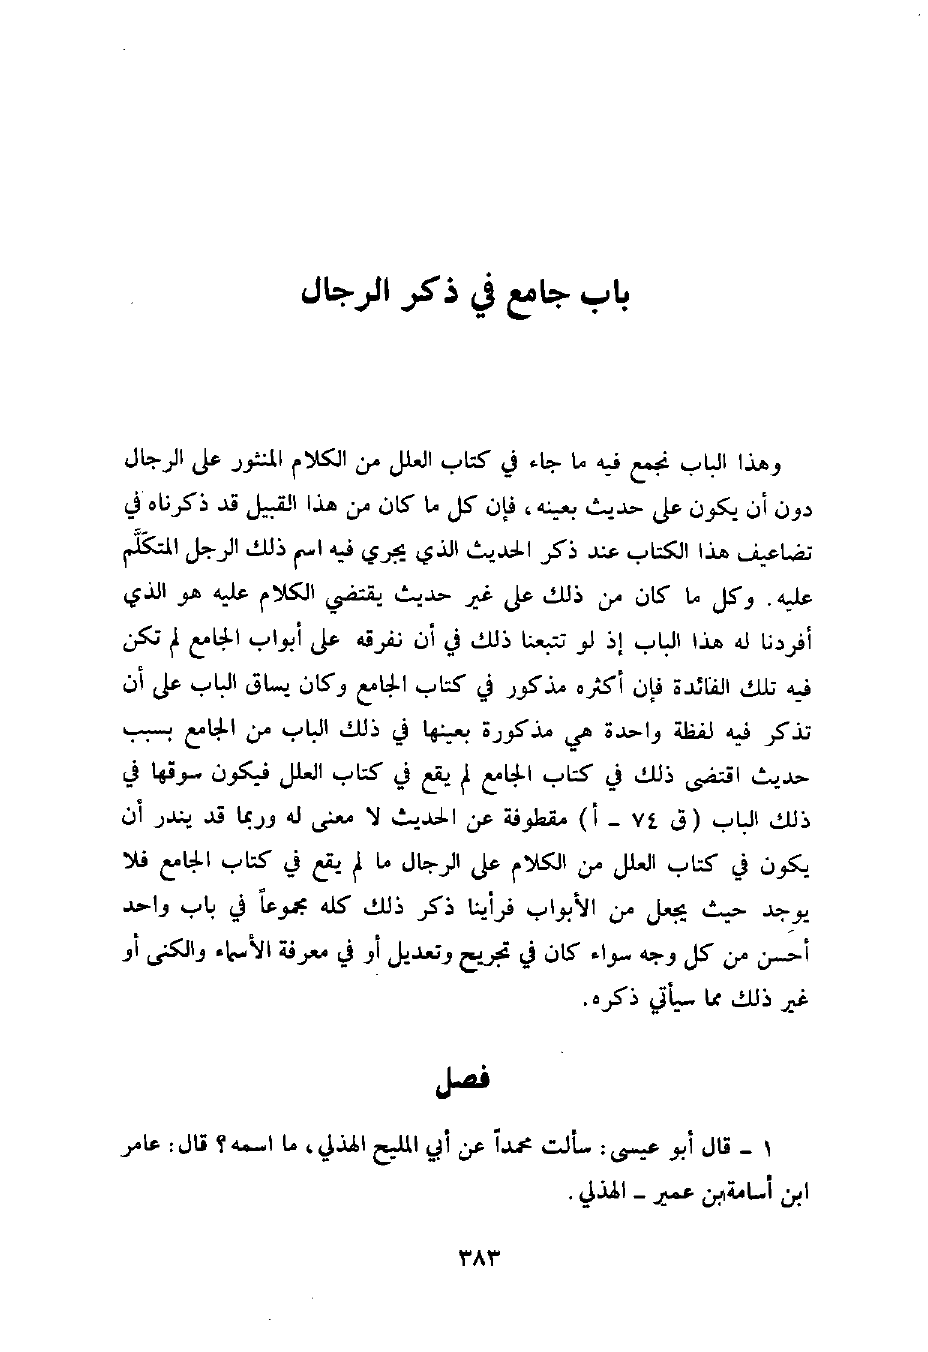 باب جامع في ذكر الرجال
وهذا الباب نجمع فيه ما جاء في كتاب العلل من الكلام المنثور على الرجال
دون أن يكون على حديث بعينه، فإن كل ما كان من هذا القبيل قد ذكرناه في
تضاعيف هذا الكتاب عند ذكر الحديث الذي يجري فيه اسم ذلك الرجل المتكلَّم
عليه. وكل ما كان من ذلك على غير حديث يقتضي الكلام عليه هو الذي
أفردنا له هذا الباب إذ لو تتبعنا ذلك في أن نفرقه على أبواب الجامع لم تكن
فيه تلك الفائدة فإن أكثره مذكور في كتاب الجامع وكان يساق الباب على أن
تذكر فيه لفظة واحدة هي مذكورة بعينها في ذلك الباب من الجامع بسبب
حديث اقتضى ذلك في كتاب الجامع لم يقع في كتاب العلل فيكون سوقها في
ذلك الباب (ق ٧٤ - أ) مقطوفة عن الحديث لا معنى له وربما قد يندر أن
يكون في كتاب العلل من الكلام على الرجال ما لم يقع في كتاب الجامع فلا
يوجد حيث يجعل من الأبواب فرأينا ذكر ذلك كله مجموعاً في باب واحد
أحسن من كل وجه سواء كان في تجريح وتعديل أو في معرفة الأسماء والكنى أو
غير ذلك مما سيأتي ذكره.
فصل
١ - قال أبو عيسى: سألت محمداً عن أبي المليح الهذلي، ما اسمه؟ قال: عامر
ابن أسامة بن عمير - الهذلي.
٣٨٣